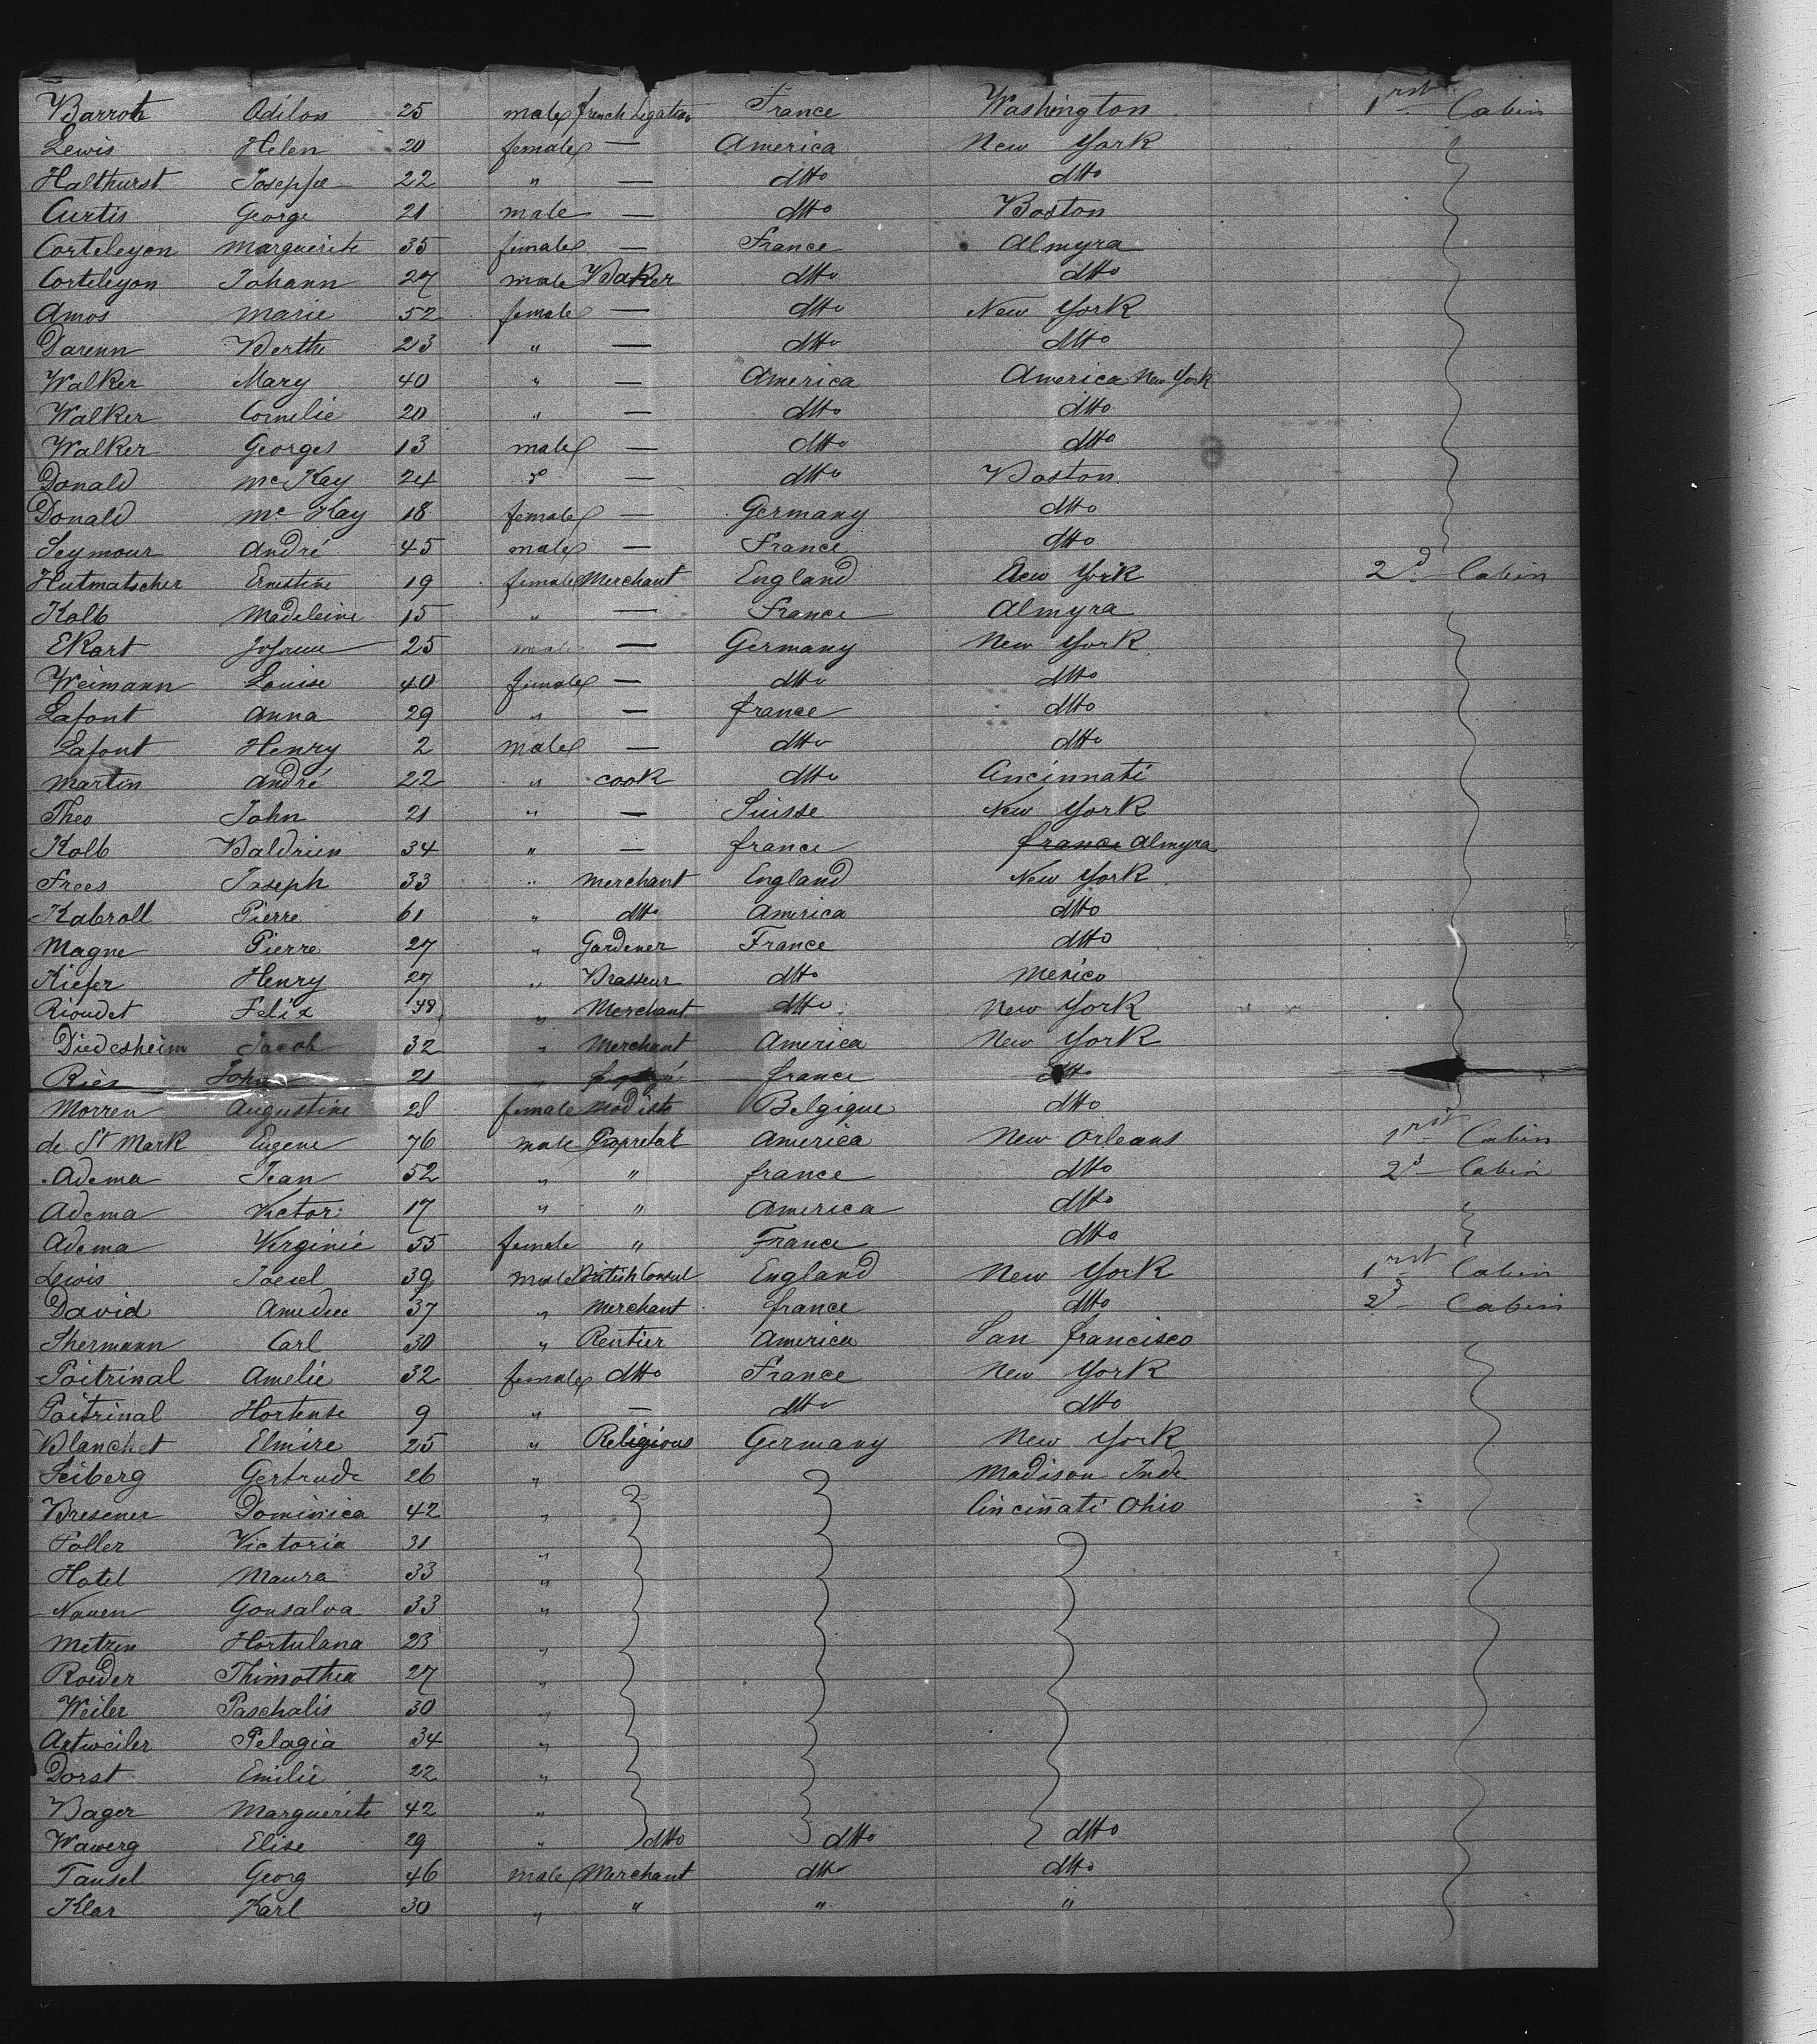 Barrot Odilon 25 male french Legation France Washington 1rst Cabin
Lewis Helen 20 female — America New York
Halthurst Joseppe 22 " — dtto dtto
Curtis George 21 male — dtto Boston
Corteleyon Marguerite 35 female — France Almyra
Corteleyon Johann 27 male Baker dtto dtto
Amos Marie 52 female — dtto New York
Darenn Berthe 23 " — dtto dtto
Walker Mary 40 " — America America New York
Walker Cornelie 20 " — dtto dtto
Walker Georges 13 male — dtto dtto
Donald Mc Kay 24 — dtto Boston
Donald Mc Kay 18 female — Germany dtto
Seymour André 45 male — France dtto
Hutmatscher Ernestine 19 female Merchant England New York 2d Cabin
Kolb Madeleine 15 " — France Almyra
Ekart 25 male — Germany New York
Weimann Louise 40 female — dtto dtto
Lafont Anna 29 " — france dtto
Lafont Henry 2 male — dtto dtto
Martin André 22 " cook dtto Cincinnati
Theo John 21 " — Suisse New York
Kolb Baldrien 34 " — france france Almyra
Frees Joseph 33 " merchant England New York
Kabroll Pierre 61 " dtto America dtto
Magne Pierre 27 " Gardener France dtto
Kiefer Henry 27 " Brasseur dtto Mexico
Rioudet Felix 48 " Merchant dtto New York
Diedesheim Jacob 32 " Merchant America New York
Riès John 21 " france dtto
Morren Augustine 28 female Modiste Belgique dtto
de St Mark Eugene 76 male Propretar America New Orleans 1rst Cabin
Adema Jean 52 " " france dtto 2d Cabin
Adema Victor 17 " " America dtto
Adema Virginie 55 female " France dtto
Lewis 39 male British Consul England New York 1rst Cabin
David Amedee 37 " Merchant france dtto 2d Cabin
Shermann Carl 30 " Rentier America San francisco
Poitrinal Amelie 32 female dtto France New York
Poitrinal Hortense 9 " — dtto dtto
Blanchet Elmire 25 " Religious Germany New York
Seiberg Gertrude 26 " Madison Inda
Bresener Dominica 42 " Cincinati Ohio
Foller Victoria 31 "
Hotel Maura 33 "
Nauen Gonsalva 33 "
Metzen Hortulana 23 "
Roeder Thimothea 27 "
Weiler Paschalis 30 "
Artweiler Pelagia 34 "
Dorst Emilie 22 "
Bager Marguerite 42 "
Wawerg Elise 29 " dtto dtto dtto
Tansel Georg 46 male Merchant dtto dtto
Klar Karl 30 " " " "